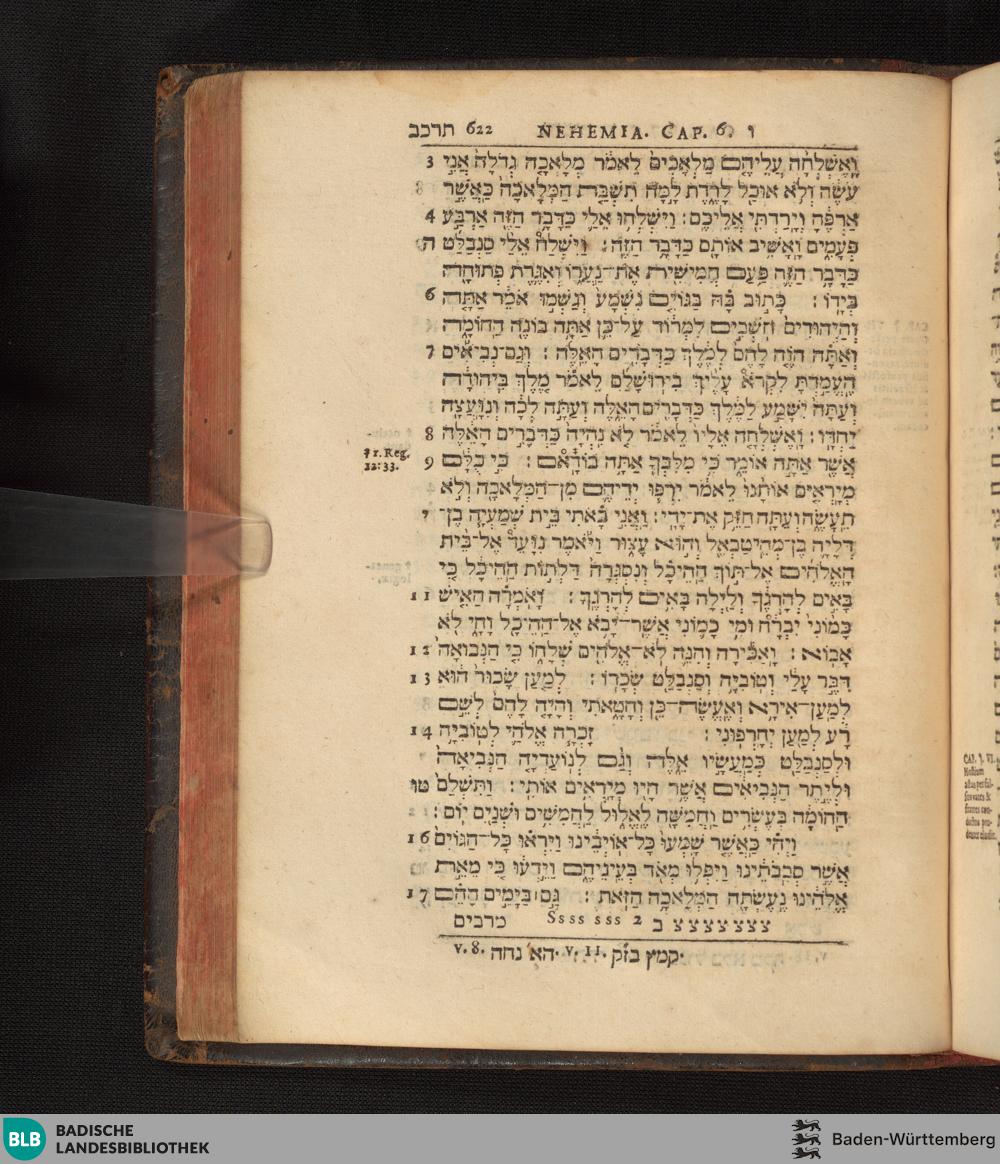 תרכב 622 NEHEMIA. CAP. 6. ו
וָאֶשְׁלְחָה עֲלֵיהֶם מַלְאָכִים לֵאמֹר מְלָאכָה גְדֹלָה אֲנִי 3
עֹשֶׂה וְלֹא אוּכַל לָרֶדֶת לָמָּה תִשְׁבַּת הַמְּלָאכָה כַּאֲשֶׁר
אַרְפֶּהָ וְיָרַדְתִּי אֲלֵיכֶם׃ וַיִּשְׁלְחוּ אֵלַי כַּדָּבָר הַזֶּה אַרְבַּע 4
פְּעָמִים וָאָשִׁיב אוֹתָם כַּדָּבָר הַזֶּה׃ וַיִּשְׁלַח אֵלַי סַנְבַלַּט ה
כַּדָּבָר הַזֶּה פַּעַם חֲמִישִׁית אֶת־נַעֲרוֹ וְאִגֶּרֶת פְּתוּחָה
בְּיָדוֹ׃ כָּתוּב בָּהּ בַּגּוֹיִם נִשְׁמָע וְגַשְׁמוּ אֹמֵר אַתָּה 6
וְהַיְּהוּדִים חֹשְׁבִים לִמְרוֹד עַל־כֵּן אַתָּה בוֹנֶה הַחוֹמָה
וְאַתָּה הֹוֶה לָהֶם לְמֶלֶךְ כַּדְּבָרִים הָאֵלֶּה׃ וְגַם־נְבִיאִים 7
הֶעֱמַדְתָּ לִקְרֹא עָלֶיךָ בִירוּשָׁלַ͏ִם לֵאמֹר מֶלֶךְ בִּיהוּדָה
וְעַתָּה יִשָּׁמַע לַמֶּלֶךְ כַּדְּבָרִים הָאֵלֶּה וְעַתָּה לְכָה וְנִוָּעֲצָה
יַחְדָּו׃ וָאֶשְׁלְחָה אֵלָיו לֵאמֹר לֹא נִהְיָה כַּדְּבָרִים הָאֵלֶּה 8
אֲשֶׁר אַתָּה אוֹמֵר כִּי מִלִּבְּךָ אַתָּה בוֹדָאם׃ כִּי כֻלָּם 9
† 1. Reg.
12:33.
מְיָרְאִים אוֹתָנוּ לֵאמֹר יִרְפּוּ יְדֵיהֶם מִן־הַמְּלָאכָה וְלֹא
תֵעָשֶׂה וְעַתָּה חַזֵּק אֶת־יָדָי׃ וַאֲנִי בָאתִי בֵּית שְׁמַעְיָה בֶן־ י
דְּלָיָה בֶּן־מְהֵיטַבְאֵל וְהוּא עָצוּר וַיֹּאמֶר נִוָּעֵד אֶל־בֵּית
הָאֱלֹהִים אֶל־תּוֹךְ הַהֵיכָל וְנִסְגְּרָה דַּלְתוֹת הַהֵיכָל כִּי
בָּאִים לְהָרְגֶךָ וְלַיְלָה בָּאִים לְהָרְגֶךָ׃ וָאֹמְרָה הַאִישׁ 11
כָּמוֹנִי יִבְרָח וּמִי כָמוֹנִי אֲשֶׁר־יָבֹא אֶל־הַהֵיכָל וָחָי לֹא
אָבוֹא׃ וָאַכִּירָה וְהִנֵּה לֹא־אֱלֹהִים שְׁלָחוֹ כִּי הַנְּבוּאָה 12
דִּבֶּר עָלַי וְטוֹבִיָּה וְסַנְבַלַּט שְׂכָרוֹ׃ לְמַעַן שָׂכוּר הוּא 13
לְמַעַן־אִירָא וְאֶעֱשֶׂה־כֵּן וְחָטָאתִי וְהָיָה לָהֶם לְשֵׁם
רָע לְמַעַן יְחָרְפוּנִי׃ זָכְרָה אֱלֹהַי לְטוֹבִיָּה 14
וּלְסַנְבַלַּט כְּמַעֲשָׂיו אֵלֶּה וְגַם לְנוֹעַדְיָה הַנְּבִיאָה
וּלְיֶתֶר הַנְּבִיאִים אֲשֶׁר הָיוּ מְיָרְאִים אוֹתִי׃ וַתִּשְׁלַם טו
הַחוֹמָה בְּעֶשְׂרִים וַחֲמִשָּׁה לֶאֱלוּל לַחֲמִשִּׁים וּשְׁנַיִם יוֹם׃
וַיְהִי כַּאֲשֶׁר שָׁמְעוּ כָּל־אוֹיְבֵינוּ וַיִּרְאוּ כָּל־הַגּוֹיִם 16
אֲשֶׁר סְבִבֹתֵינוּ וַיִּפְּלוּ מְאֹד בְּעֵינֵיהֶם וַיֵּדְעוּ כִּי מֵאֵת
אֱלֹהֵינוּ נֶעֶשְׂתָה הַמְּלָאכָה הַזֹּאת׃ גַּם בַּיָּמִים הָהֵם 17
צצצצצצצ ב Ssss sss 2 מרבים
v. 8. הא נחה v. 11. קמץ בזק
CAP. VI.
BLB BADISCHE
LANDESBIBLIOTHEK
Baden-Württemberg